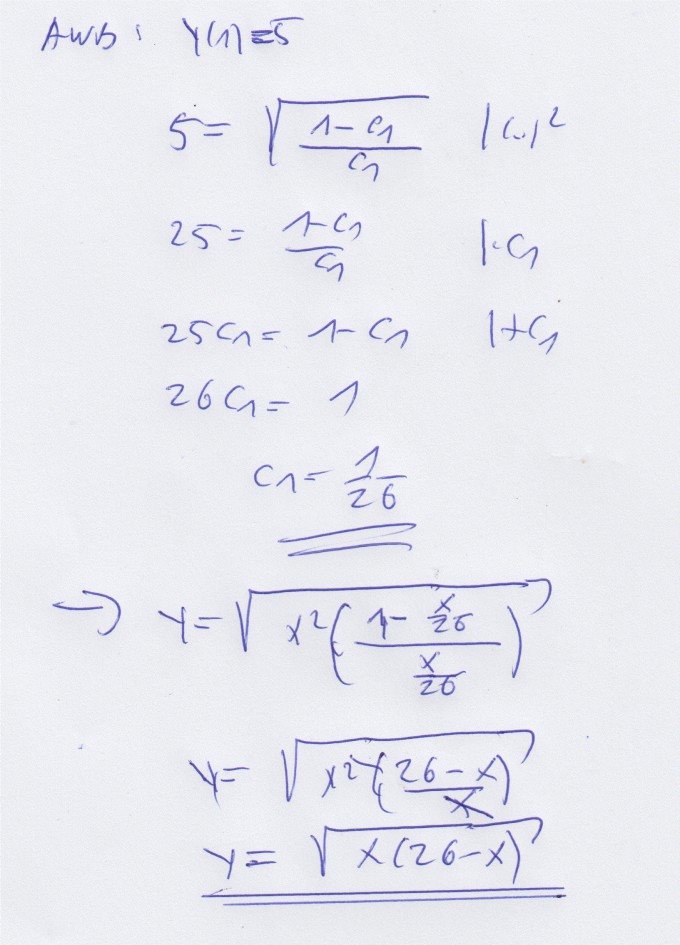 AWB: Y(1)=5
5 = √((1-C1)/C1) |(..)²
25 = (1-C1)/C1 |·C1
25C1 = 1-C1 |+C1
26C1 = 1
C1 = 1/26
→ Y = √(x²((1 - x/26)/(x/26)))
Y = √(x²((26-x)/x))
Y = √(x(26-x))